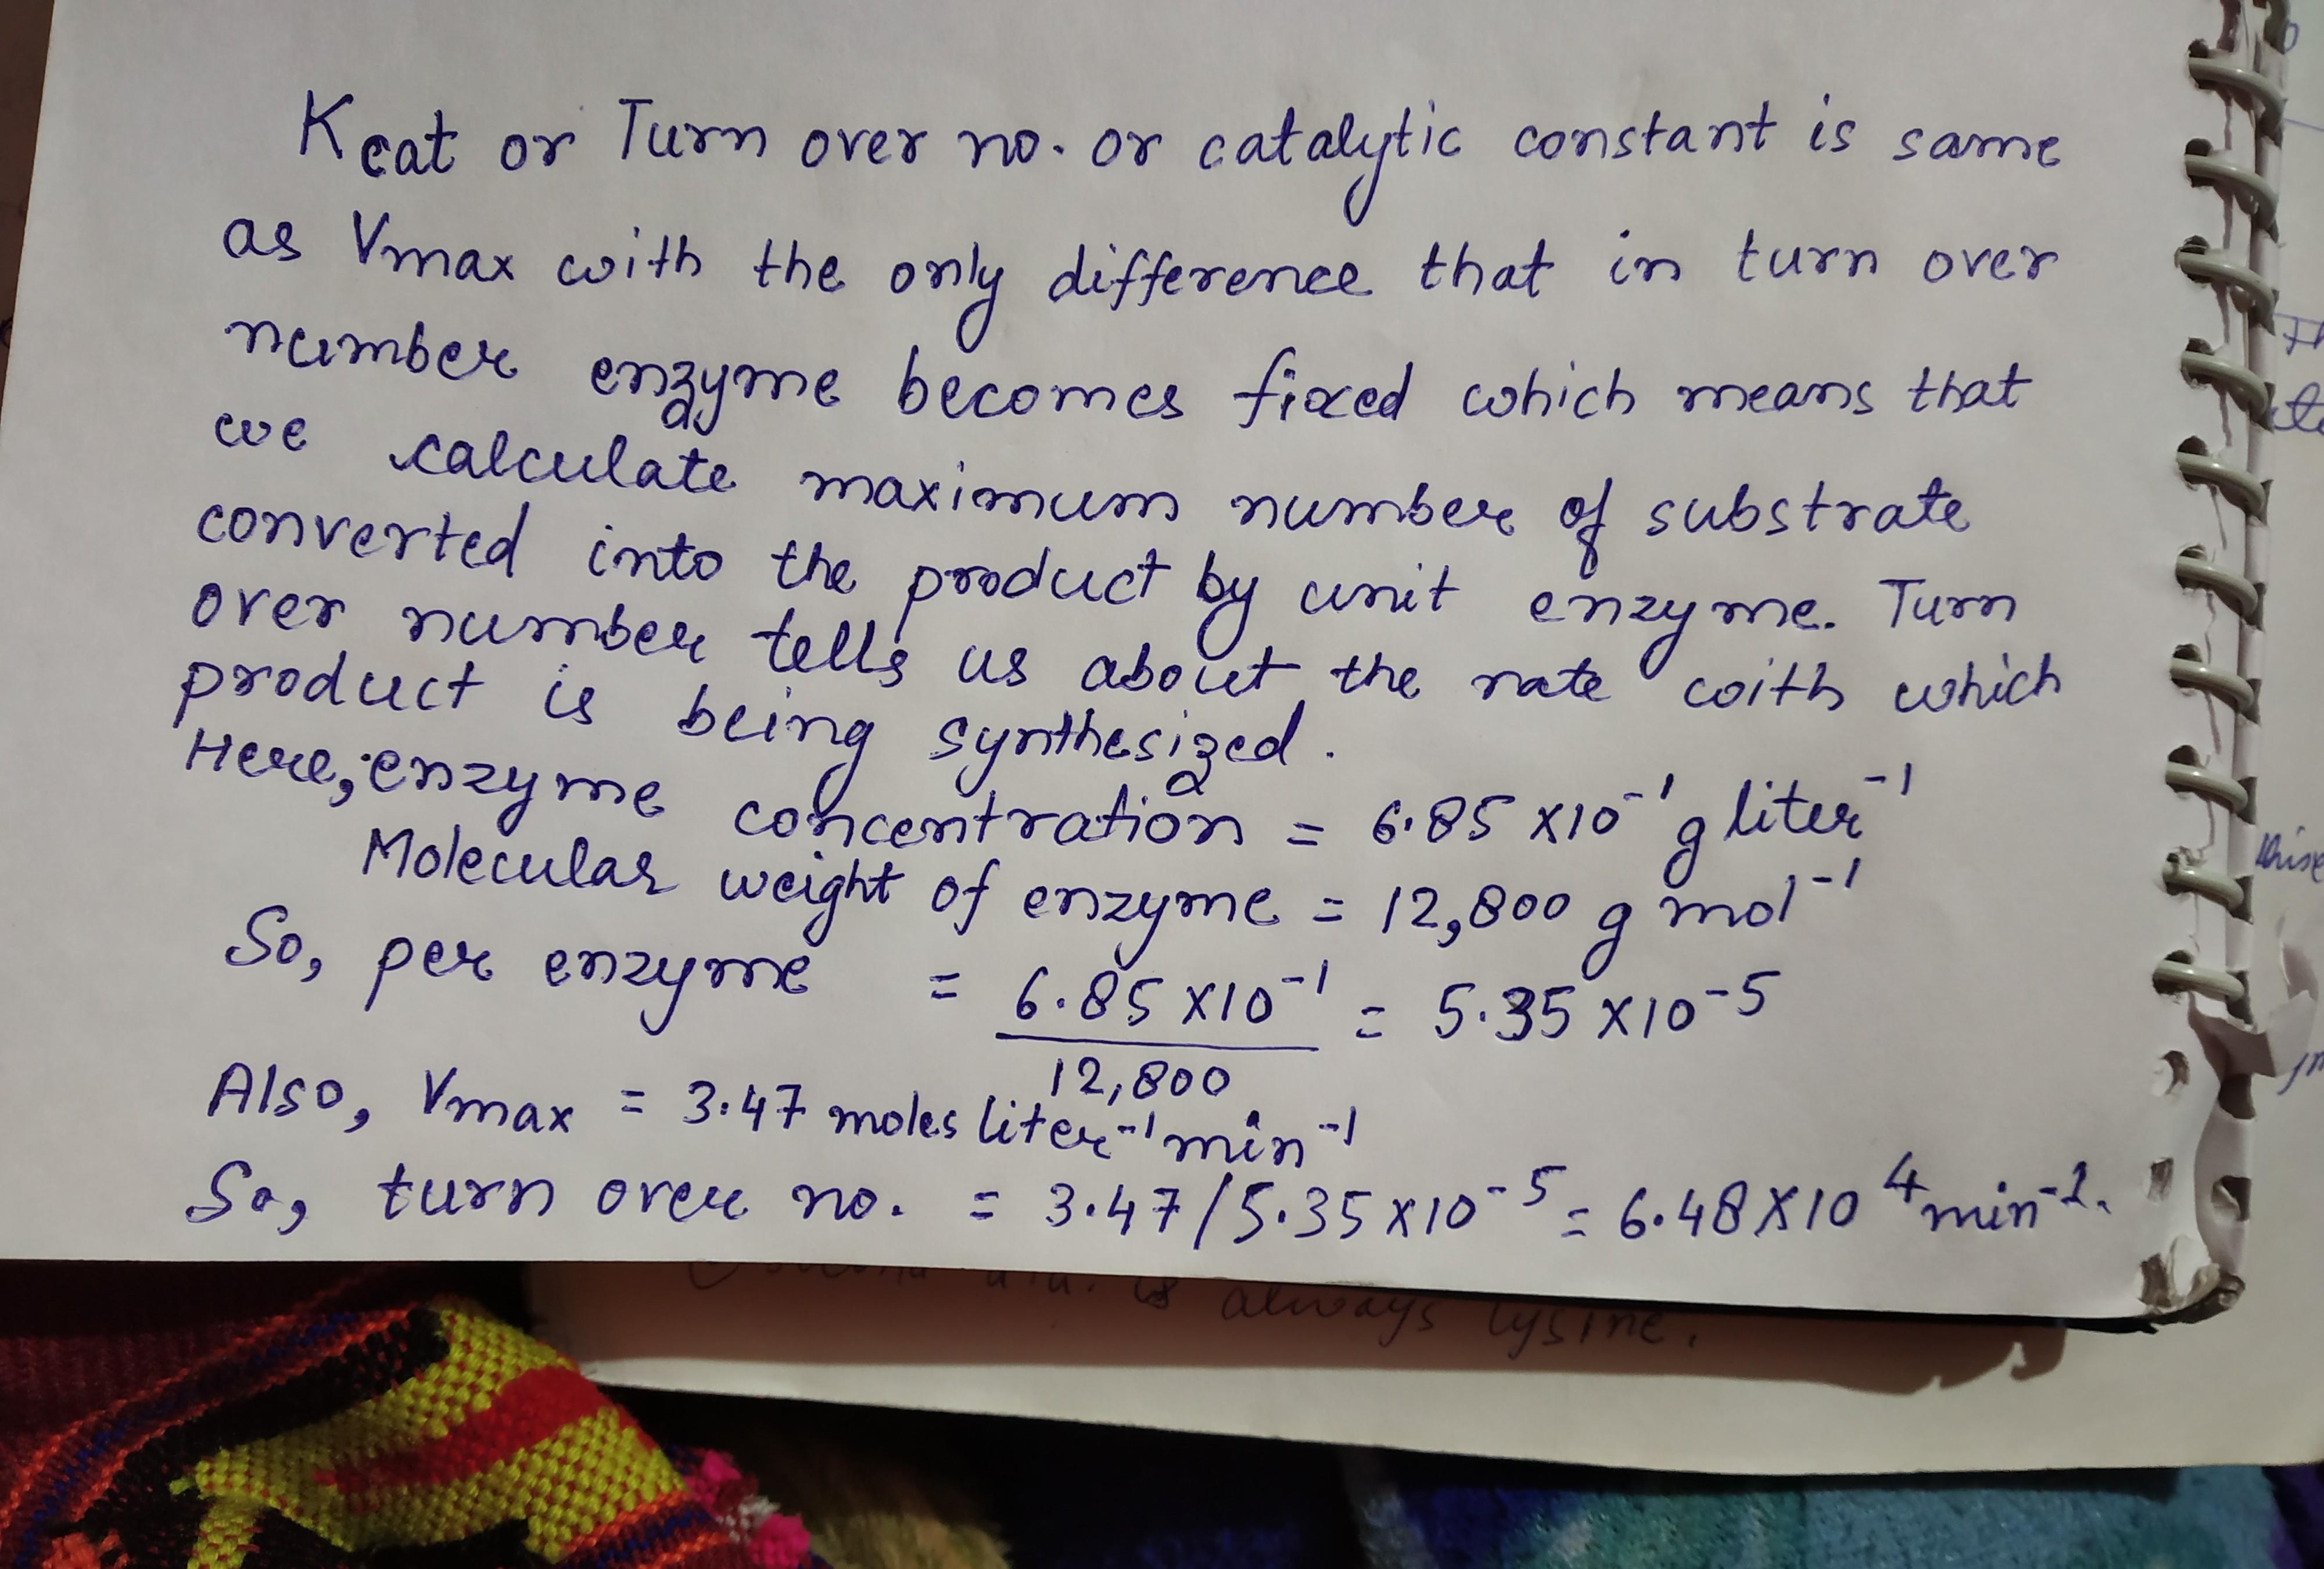 Kcat or Turn over no. or catalytic constant is same
as Vmax with the only difference that in turn over
number enzyme becomes fixed which means that
we calculate maximum number of substrate
converted into the product by unit enzyme. Turn
over number tells us about the rate with which
product is being synthesized.
Here, enzyme concentration = 6.85 x10⁻¹ g liter⁻¹
Molecular weight of enzyme = 12,800 g mol⁻¹
So, per enzyme = 6.85 x10⁻¹ / 12,800 = 5.35 x10⁻⁵
Also, Vmax = 3.47 moles liter⁻¹ min⁻¹
So, turn over no. = 3.47/5.35x10⁻⁵ = 6.48x10⁴ min⁻².
is always lysine.